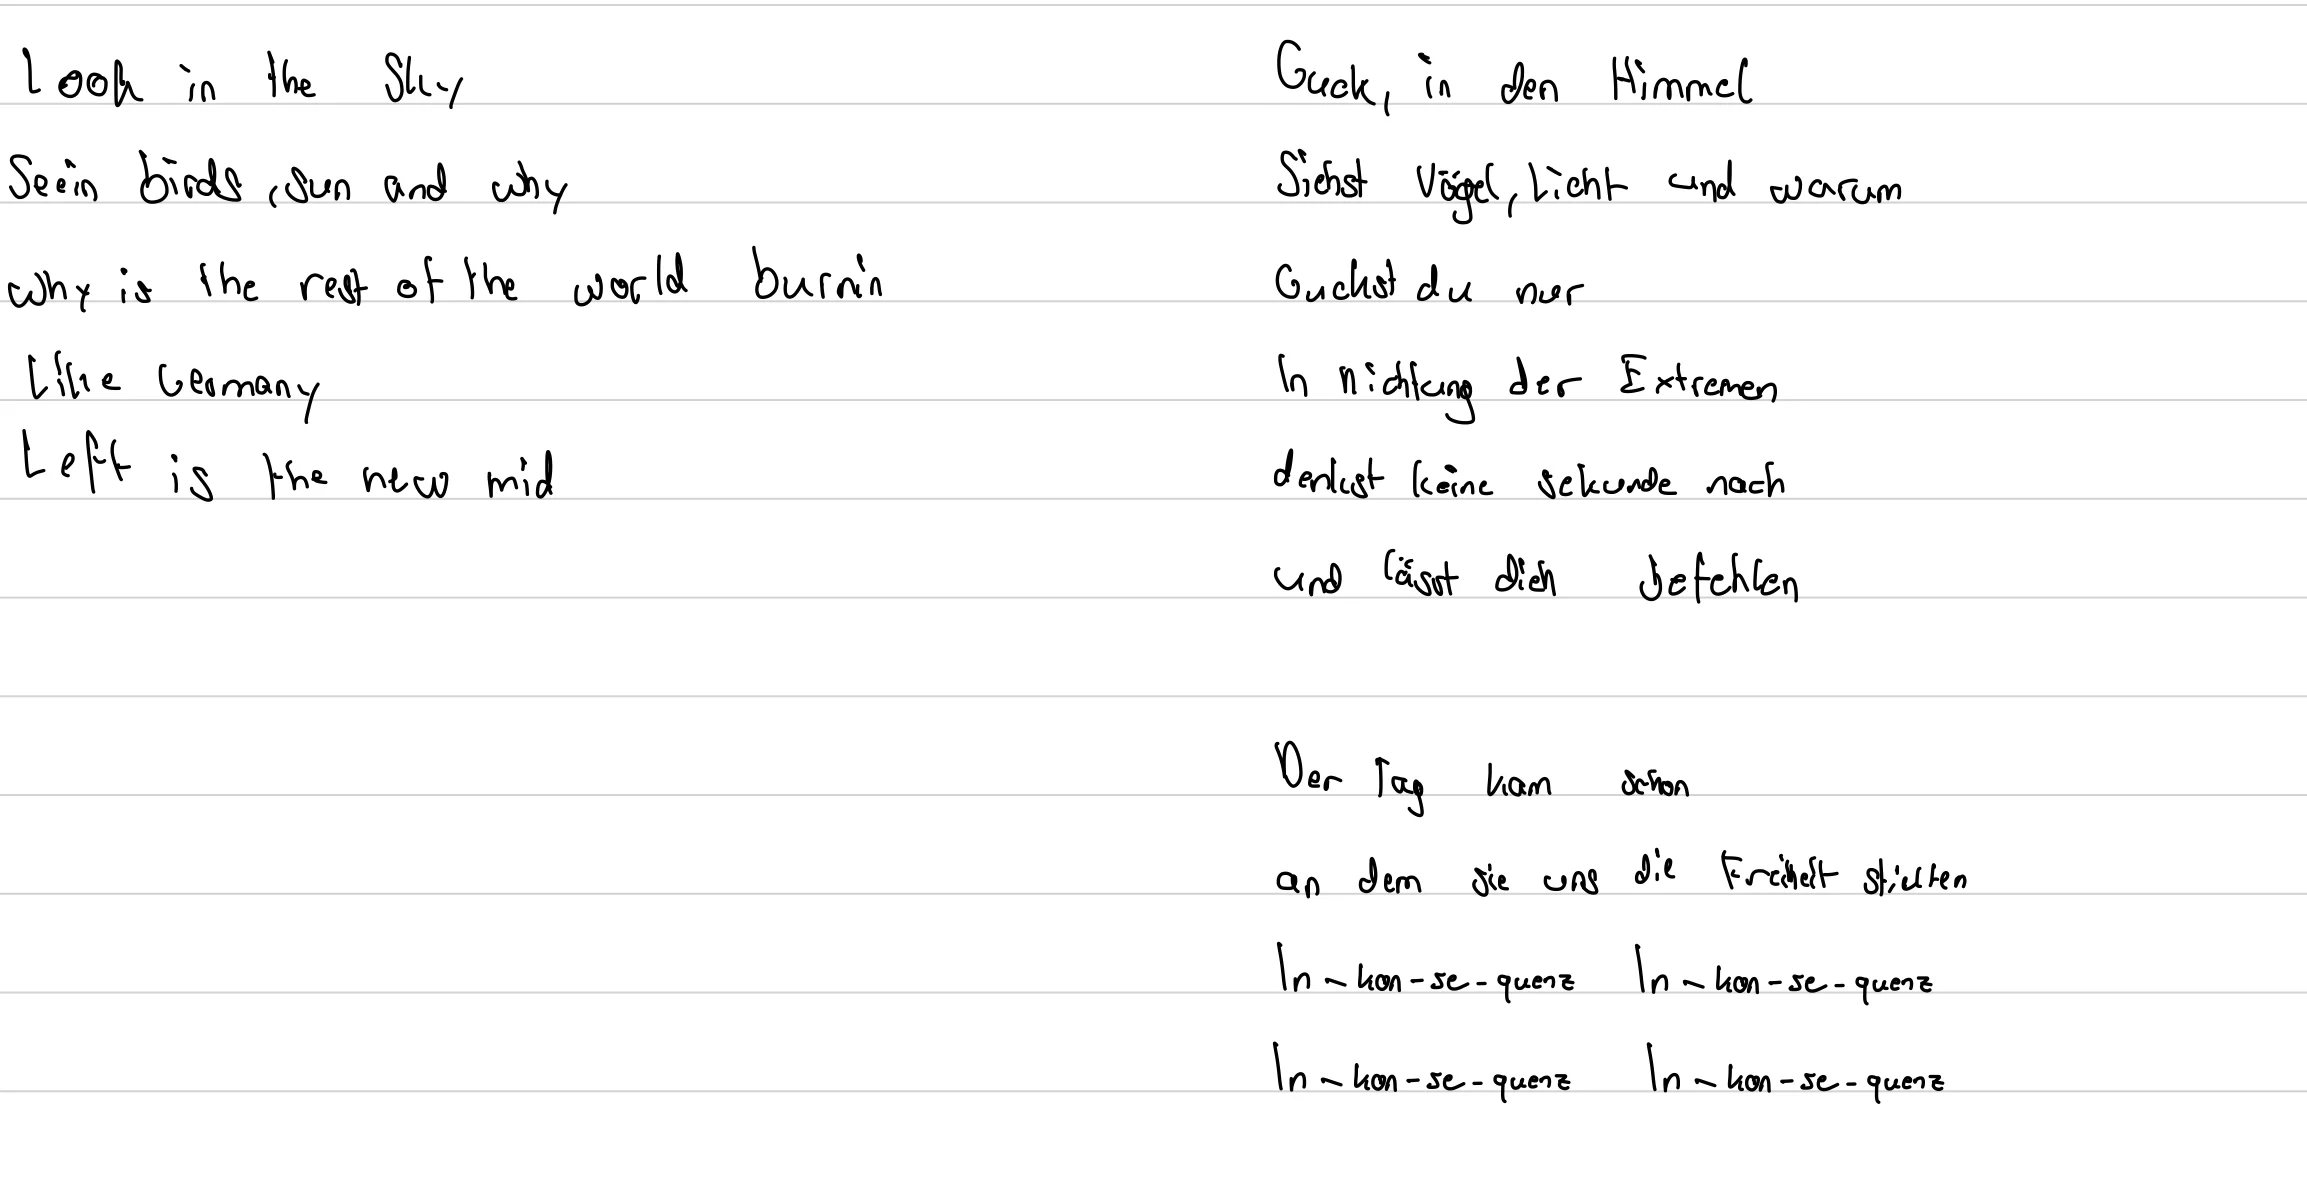 Look in the Sky
Seein birds, sun and why
why is the rest of the world burnin
Like Germany
Left is the new mid
Guck, in den Himmel
Siehst Vögel, Licht und warum
Guckst du nur
In richtung der Extremen
denkst keine sekunde nach
und lässt dich befehlen
Der Tag kam schon
an dem sie uns die Freiheit stielten
In-kon-se-quenz In-kon-se-quenz
In-kon-se-quenz In-kon-se-quenz